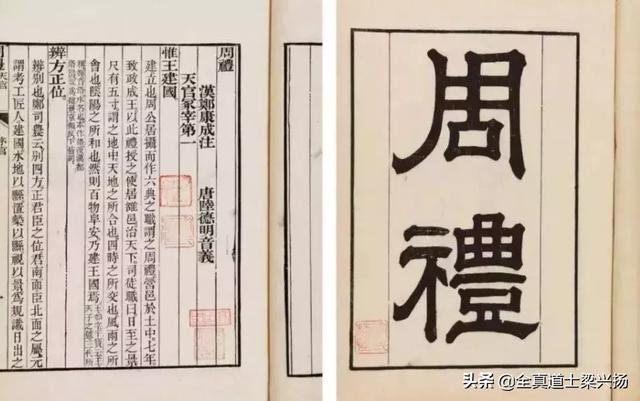 周禮
漢鄭康成注 唐陸德明音義
天官冢宰第一
惟王建國
建立也周公居攝而作六典之職謂之周禮營邑於土中七年
致政成王以此禮授之使居雒邑治天下司徒職曰日至之景
尺有五寸謂之地中天地之所合也四時之所交也風雨之所
會也陰陽之所和也然則百物阜安乃建王國焉
辨方正位
辨別也鄭司農云別四方正君臣之位君南面臣北面之屬元
謂考工匠人建國水地以縣置槷以縣視以景爲規識日出之
周禮
头条 @全真道士梁兴扬